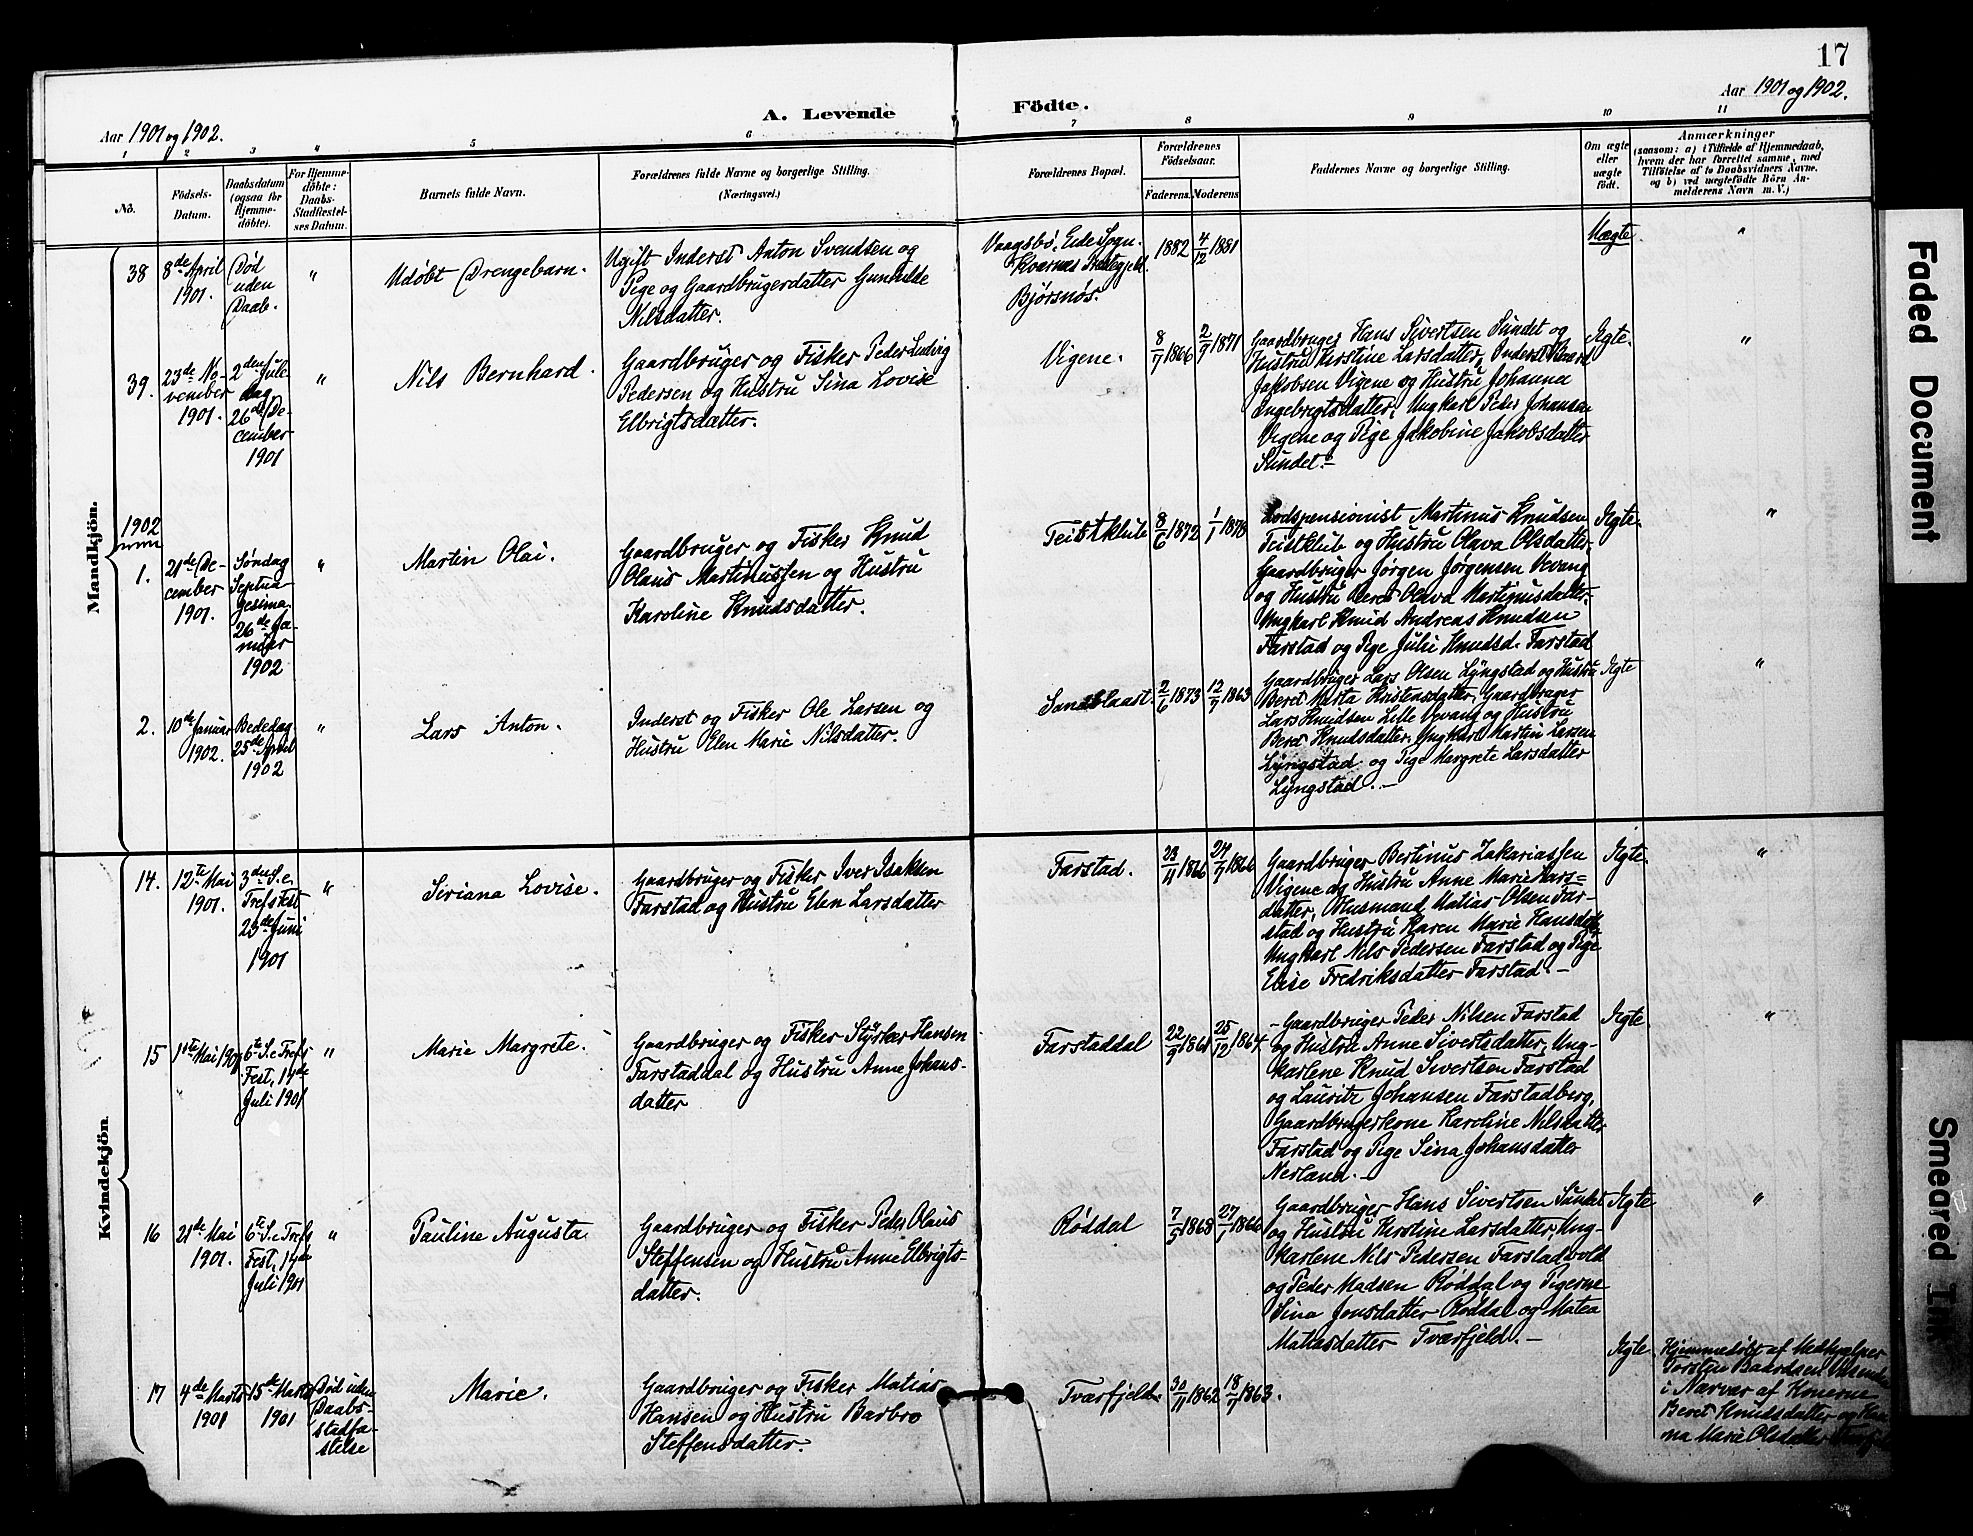 17
Aar 1901 og 1902.
A. Levende Födte.
Aar 1901 og 1902.
1 2 3 4 5 6 7 8 9 10 11
No.
Födsels-
Datum.
Daabsdatum
(ogsaa for
Hjemme-
døbte).
For Hjemme-
döbte:
Daabs-
Stadfæstel-
ses Datum.
Barnets fulde Navn.
Forældrenes fulde Navne og borgerlige Stilling.
(Næringsvei.)
Forældrenes Bopæl.
Forældrenes
Födselsaar.
Faderens. Moderens.
Faddernes Navne og borgerlige Stilling.
Om ægte
eller
uægte
født.
Anmærkninger
(saasom: a) i Tilfælde af Hjemmedaab,
hvem der har forrettet samme, med
Tilföielse af to Daabsvidners Navne.
og b) ved uægtefödte Börn An-
melderens Navn m. V.)
Mandkjön.
38
8de April
1901.
Død
uden
Daab.
"
Udöbt Drengebarn.
Ugift Inderst Anton Svendsen og
Pige og Gaardbrugerdatter Gunhilde
Nilsdatter.
Vaagsbö, Eide Sogn.
Kvernæs Prestegjeld.
Bjørsnøs.
1882
4/12 1881
Uægte.
"
39.
23de No-
vember
1901.
2den Jule
dag,
26de De-
cember
1901
"
Nils Bernhard.
Gaardbruger og Fisker Peder Ludvig
Pedersen og Hustru Sina Lovise
Elbrigtsdatter.
Vigene.
8/7 1866
2/7 1871
Gaardbruger Hans Sivertsen Sundet og
Hustru Kirstine Larsdatter, Inderst Baard
Jakobsen Vigene og Hustru Johanna
Ingebrigtsdatter, Ungkarl Peder Johansen
Vigene og Pige Jakobine Jakobsdatter
Sundet.-
Ægte.
"
1902
1.
21de De-
cember
1901.
Søndag
Septua-
gesima
26de Ja-
nuar
1902
"
Martin Olai.
Gaardbruger og Fisker Knud
Olaus Martinussen og Hustru
Karoline Knudsdatter.
Teistklub
8/6 1872
1/1 1878
Lodspensionist Martinus Knudsen
Teistklub og Hustru Olava Olsdatter,
Gaardbruger Jørgen Jørgensen Vevang
og Hustru Beret Olava Martinusdatter,
Ungkarl Knud Andreas Knudsen
Farstad og Pige Julie Knudsd. Farstad
Ægte.
"
2.
10de Januar
1902.
Bededag
25de April
1902
"
Lars Anton.
Inderst og Fisker Ole Larsen og
Hustru Elen Marie Nilsdatter.
Sandblaast.
2/6 1873
12/7 1863
Gaardbruger Lars Olsen Lyngstad og Hustru
Beret Marta Kristensdatter, Gaardbruger
Lars Knudsen Lille Vevang og Hustru
Beret Knudsdatter, Ungkarl Martin Larsen
Lyngstad og Pige Margrete Larsdatter
Lyngstad.-
Ægte
"
Kvindekjön.
14.
12te Mai
1901.
3die S. e.
Trefs Fest
23de Juni
1901
"
Seriana Lovise.
Gaardbruger og Fisker Iver Isaksen
Farstad og Hustru Elen Larsdatter
Farstad.
23/11 1866
27/7 1866
Gaardbruger Bertinus Zakariassen
Vigene og Hustru Anne Marie Lars=
datter, Husmand Matias Olsen Far-
stad og Hustru Karen Marie Hansdatter,
Ungkarl Nils Pedersen Farstad og Pige
Elise Fredriksdatter Farstad.-
Ægte.
"
15
11te Mai 1901
6te S. e. Trefs
Fest, 14de
Juli 1901
"
Marie Margrete.
Gaardbruger og Fisker Styrker Hansen
Farstaddal og Hustru Anne Johans-
datter
Farstaddal
22/9 1861
25/12 1864
- Gaardbruger Peder Nilsen Farstad
og Hustru Anne Sivertsdatter, Ung-
karlene Knud Sivertsen Farstad
og Lauritz Johansen Farstadberg,
Gaardbrugerkone Karoline Nilsdatter
Farstad og Pige Sina Johansdatter
Nerland.-
Ægte
"
16
21de Mai
1901.
6te S. e. Trefs
Fest, 14de
Juli 1901
"
Pauline Augusta.
Gaardbruger og Fisker Peder Olaus
Steffensen og Hustru Anne Elbrigts-
datter.
Røddal
7/5 1868
27/1 1866
Gaardbruger Hans Sivertsen Sundet
og Hustru Kirstine Larsdatter, Ung-
karlene Nils Pedersen Farstadvold
og Peder Madsen Røddal og Pigerne
Sina Jonsdatter Røddal og Matea
Matiasdatter Tværfjeld.-
Ægte
"
17
4de Marts
1901
15de Marts
1901
Død uden
Daabs-
stadfæ-
stelse
Marie.
Gaardbruger og Fisker Matias
Hansen og Hustru Barbro
Steffensdatter.
Tværfjeld.
30/11 1862
18/7 1863.
Ægte
Hjemmedøbt af Medhjælper
Torsten Baardsen
i Nærvær af Konerne
Beret Knudsdatter og Han-
na Marie Olsdatter
Faded Document
Smeared Ink